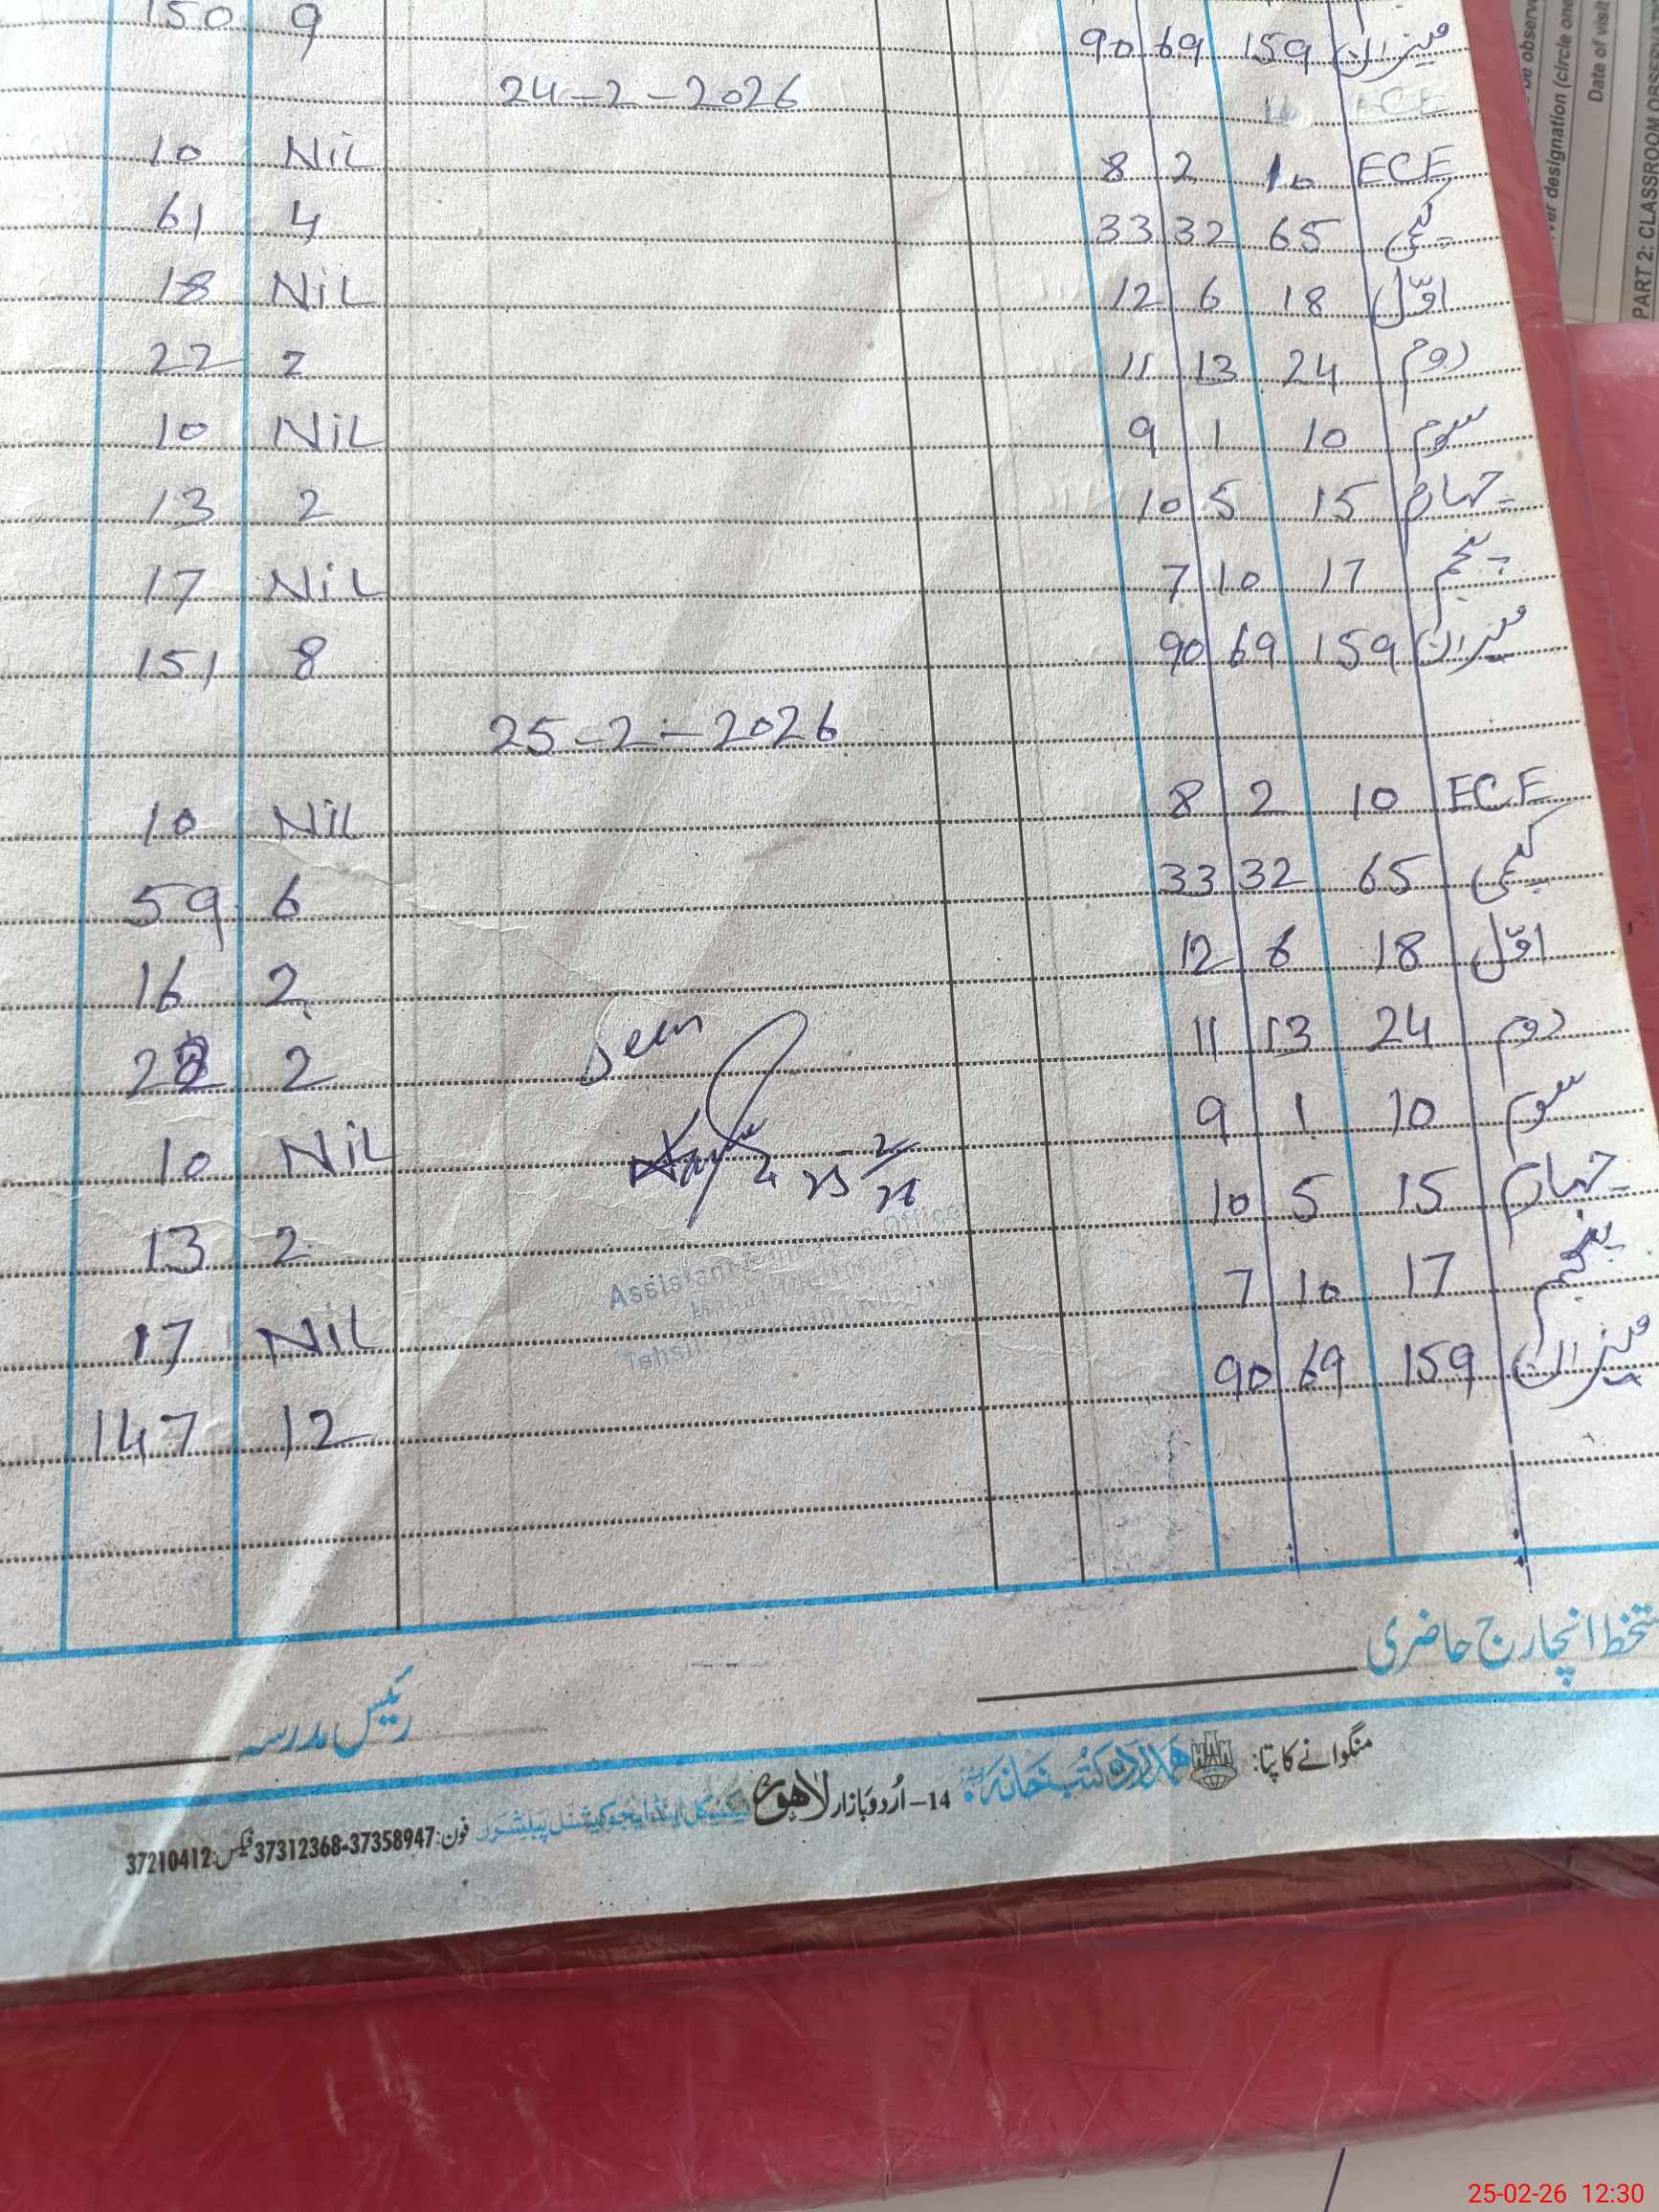 150 9 90 69 159 میزان
24-2-2026
10 Nil 8 2 10 ECE
61 4 33 32 65 کچی
18 Nil 12 6 18 اوّل
22 2 11 13 24 دوم
10 Nil 9 1 10 سوم
13 2 10 5 15 چہارم
17 Nil 7 10 17 پنجم
151 8 90 69 159 میزان
25-2-2026
10 Nil 8 2 10 ECE
59 6 33 32 65 کچی
16 2 12 6 18 اوّل
22 2 11 13 24 دوم
Seen
10 Nil 9 1 10 سوم
25 2/26
13 2 10 5 15 چہارم
Assistant Education Officer
Tehsil
17 Nil 7 10 17 پنجم
147 12 90 69 159 میزان
دستخط انچارج حاضری
رئیس مدرسہ
منگوانے کا پتا: ہمدرد کتب خانہ 14-اُردو بازار لاہور ٹیکنیکل اینڈ ایجوکیشنل پبلیشرز فون:37358947-37312368 فیکس:37210412
be observe
ver designation (circle one
Date of visit
PART 2: CLASSROOM OBSERVAT
25-02-26 12:30